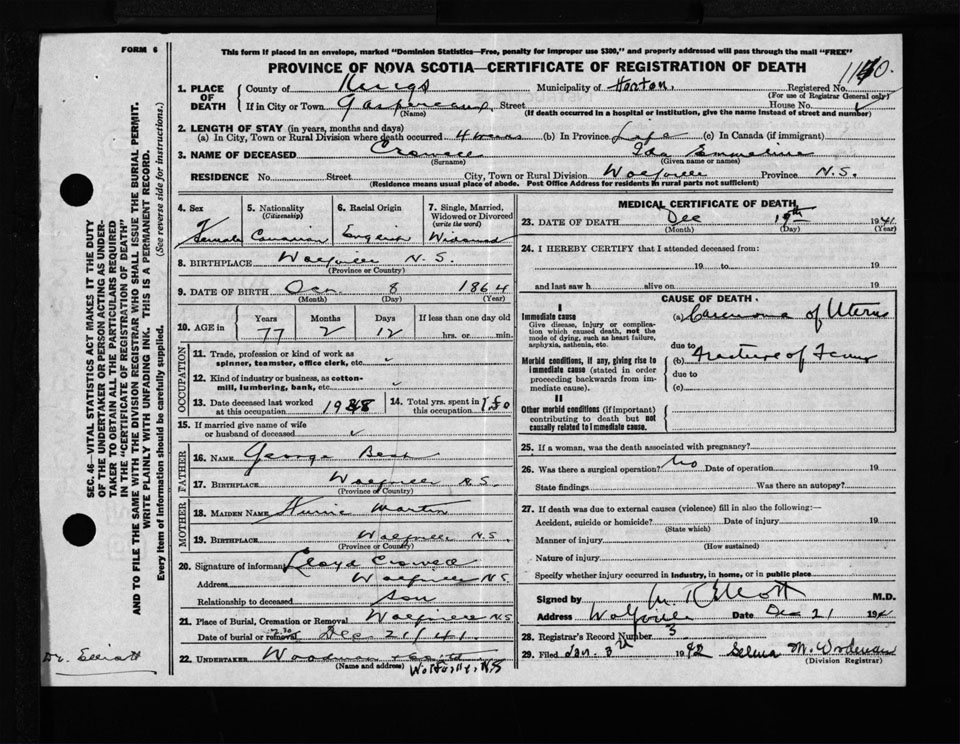 FORM 6
This form if placed in an envelope, marked "Dominion Statistics—Free, penalty for improper use $300," and properly addressed will pass through the mail "FREE"
PROVINCE OF NOVA SCOTIA—CERTIFICATE OF REGISTRATION OF DEATH
1. PLACE OF DEATH County of Kings Municipality of Horton. Registered No.
(For use of Registrar General only)
If in City or Town Gaspereaux, Street House No.
(Name) (If death occurred in a hospital or institution, give the name instead of street and number)
2. LENGTH OF STAY (in years, months and days)
(a) In City, Town or Rural Division where death occurred 4 weeks (b) In Province Life (c) In Canada (if immigrant)
3. NAME OF DECEASED Crowell Ida Emmeline
(Surname) (Given name or names)
RESIDENCE No. Street City, Town or Rural Division Wolfville Province N.S.
(Residence means usual place of abode. Post Office Address for residents in rural parts not sufficient)
4. Sex 5. Nationality (Citizenship) 6. Racial Origin 7. Single, Married, Widowed or Divorced (write the word)
Female Canadian English Widowed
8. BIRTHPLACE Wolfville N.S.
(Province or Country)
9. DATE OF BIRTH 8 1864
(Month) (Day) (Year)
10. AGE in Years Months Days If less than one day old
77 2 12 hrs. or min.
OCCUPATION
11. Trade, profession or kind of work as spinner, teamster, office clerk, etc. ✓
12. Kind of industry or business, as cotton-mill, lumbering, bank, etc. ✓
13. Date deceased last worked at this occupation 14. Total yrs. spent in this occupation
15. If married give name of wife or husband of deceased ✓
FATHER
16. NAME George
17. BIRTHPLACE Wolfville N.S.
(Province or Country)
MOTHER
18. MAIDEN NAME Martin
19. BIRTHPLACE Wolfville N.S.
(Province or Country)
20. Signature of informant Lloyd Crowell
Address Wolfville N.S
Relationship to deceased son
21. Place of Burial, Cremation or Removal Wolfville N.S
Date of burial or removal Dec 21/41.
22. UNDERTAKER
(Name and address) Wolfville, N.S
MEDICAL CERTIFICATE OF DEATH
23. DATE OF DEATH Dec 19th 1941
(Month) (Day) (Year)
24. I HEREBY CERTIFY that I attended deceased from:
19 to 19
and last saw h alive on 19
CAUSE OF DEATH.
I
Immediate cause (a) Carcinoma of Uterus
Give disease, injury or complication which caused death, not the mode of dying, such as heart failure, asphyxia, asthenia, etc.
due to
Morbid conditions, if any, giving rise to immediate cause (stated in order proceeding backwards from immediate cause).
(b) Fracture of Femur
due to
(c)
II
Other morbid conditions (if important) contributing to death but not causally related to immediate cause.
25. If a woman, was the death associated with pregnancy?
26. Was there a surgical operation? No Date of operation 19
State findings Was there an autopsy?
27. If death was due to external causes (violence) fill in also the following:—
Accident, suicide or homicide? Date of injury 19
(State which)
Manner of injury
(How sustained)
Nature of injury
Specify whether injury occurred in industry, in home, or in public place
Signed by Elliott M.D.
Address Wolfville Date Dec 21 194
28. Registrar's Record Number 3
29. Filed Jan. 3rd 1942 Selma M. Woodman
(Division Registrar)
SEC. 46—VITAL STATISTICS ACT MAKES IT THE DUTY
OF THE UNDERTAKER OR PERSON ACTING AS UNDER-
TAKER TO OBTAIN ALL THE PARTICULARS REQUIRED
IN THE "CERTIFICATE OF REGISTRATION OF DEATH"
AND TO FILE THE SAME WITH THE DIVISION REGISTRAR WHO SHALL ISSUE THE BURIAL PERMIT.
WRITE PLAINLY WITH UNFADING INK. THIS IS A PERMANENT RECORD.
Every item of information should be carefully supplied. (See reverse side for instructions.)
Dr. Elliott